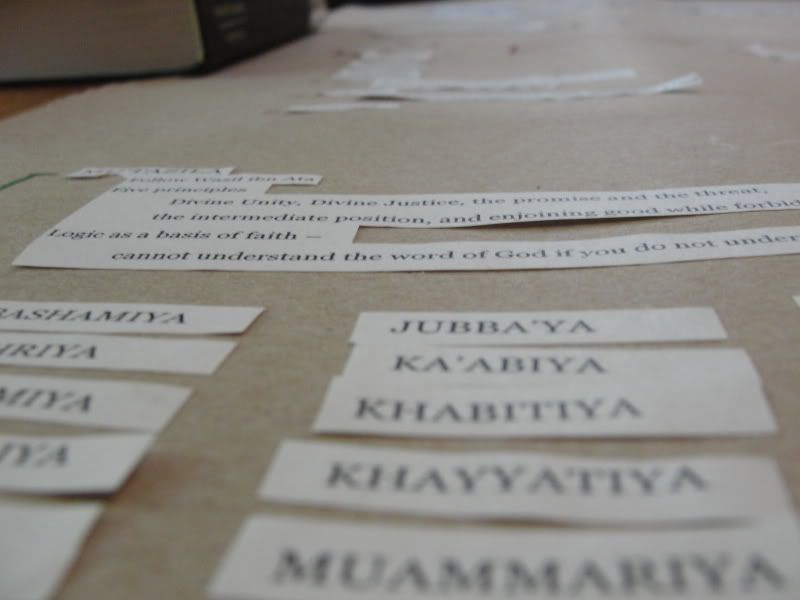 MU'TAZILA
Follow Wasil ibn Ata
Five principles
Divine Unity, Divine Justice, the promise and the threat,
the intermediate position, and enjoining good while forbid
Logic as a basis of faith –
cannot understand the word of God if you do not under
BASHAMIYA
HRIYA
MIYA
IYA
JUBBA'YA
KA'ABIYA
KHABITIYA
KHAYYATIYA
MUAMMARIYA